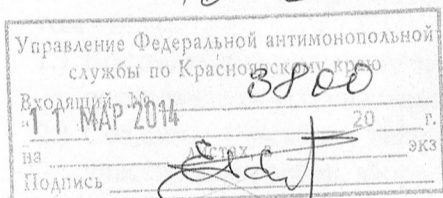 Управление Федеральной антимонопольной
службы по Красноярскому краю
Входящий № 3800
"11 МАР 2014 20 г.
на листах в экз
Подпись